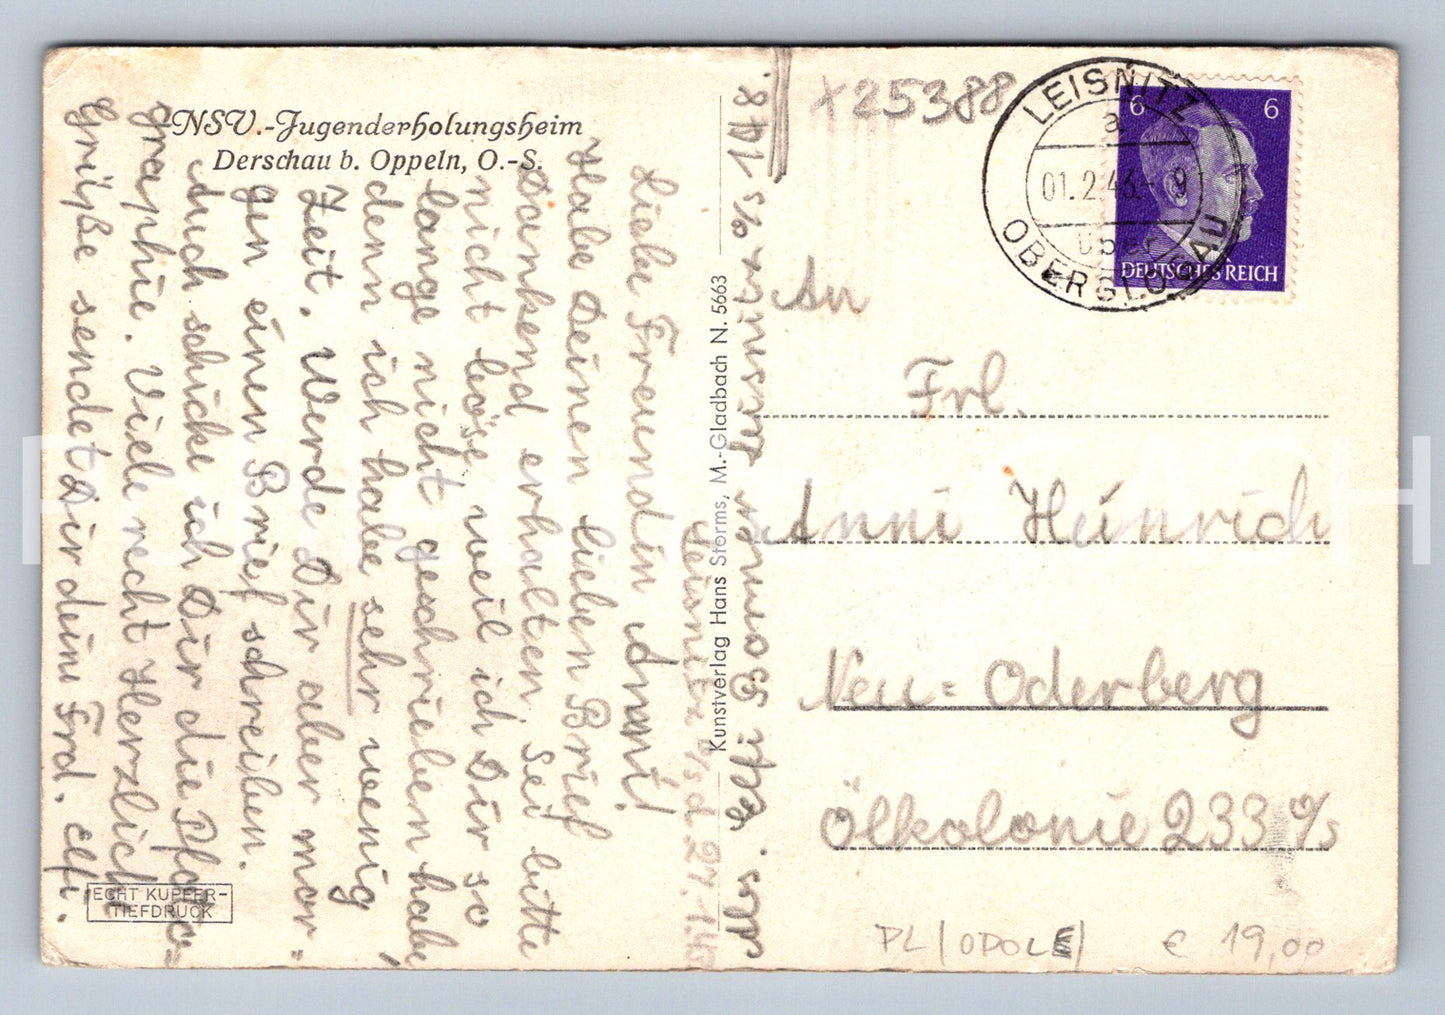 NSV.-Jugenderholungsheim
Derschau b. Oppeln, O.-S.
Leisnitz o/s d 27.1.43
Liebe Freundin Anni!
Habe Deinen lieben Brief
dankend erhalten. Sei bitte
nicht böse, weil ich Dir so
lange nicht geschrieben habe,
denn ich habe sehr wenig
Zeit. Werde Dir aber mor=
gen einen Brief schreiben.
Auch schicke ich Dir die Photo=
graphie. Viele recht Herzlich
Grüße sendet Dir deine Frd. Elfi.
ECHT KUPFER-
TIEFDRUCK
Kunstverlag Hans Storms, M.-Gladbach N. 5663
Abs. Elfi Leisnitz o/s 148.
X25388
LEISNITZ
a
01.2.43.-9
über
OBERGLOGAU
6 6
DEUTSCHES REICH
An
Frl.
Anni Heinrich
Neu=Oderberg
Ölkolonie 233 o/s
PL (OPOLE)
€ 19,00